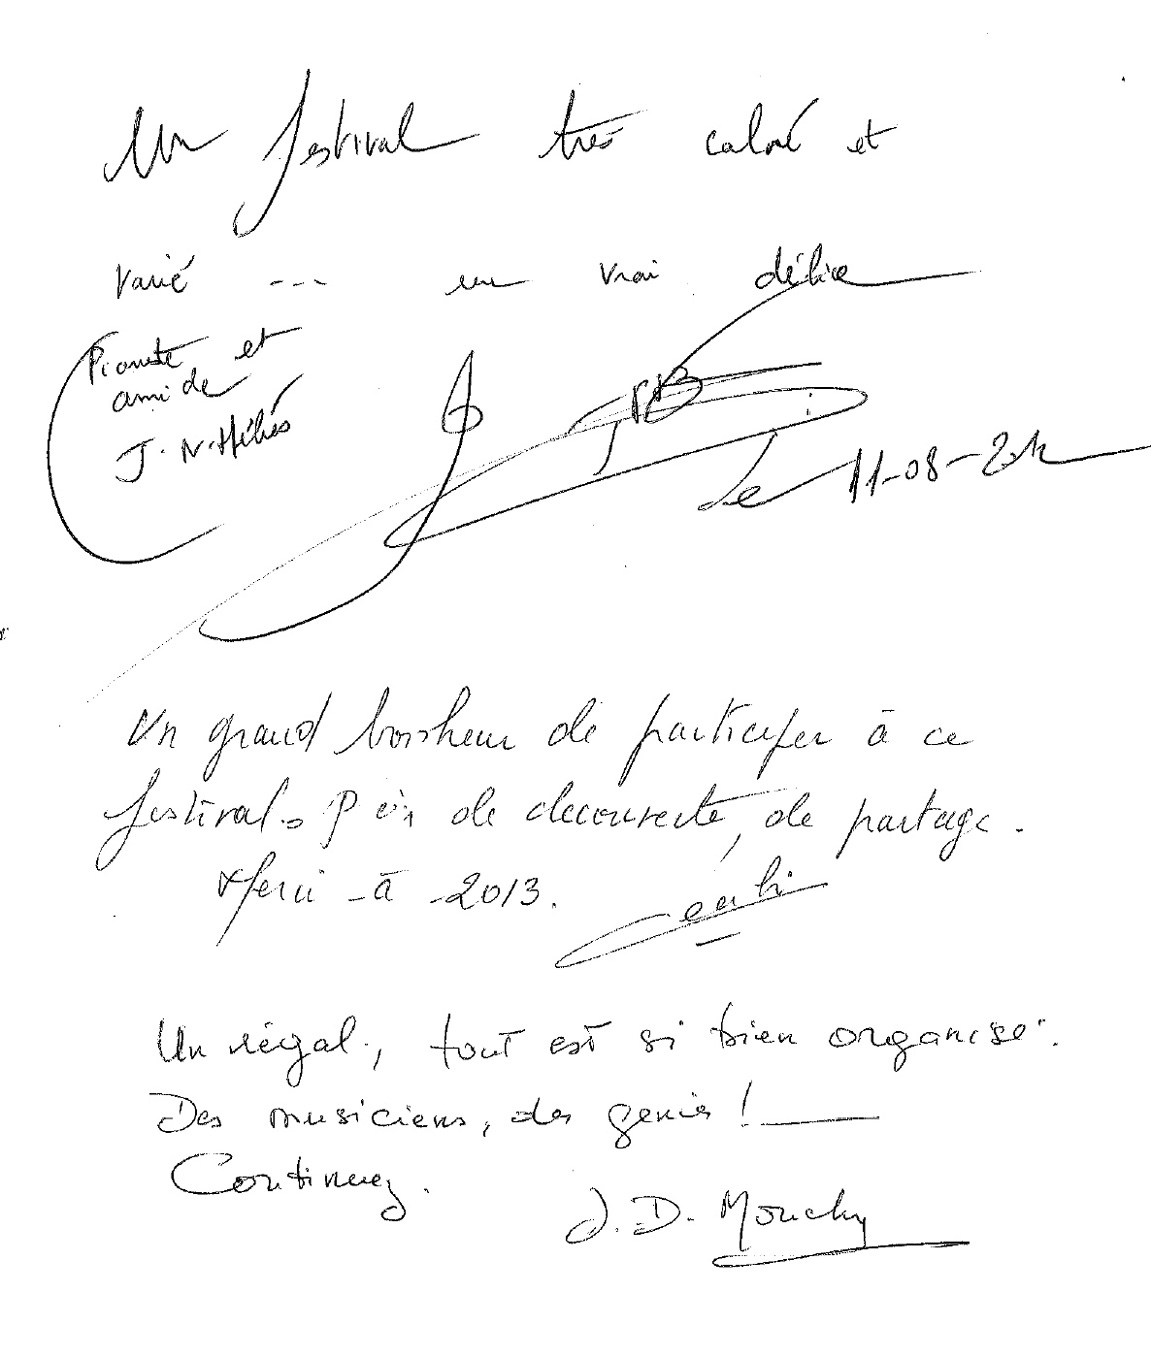 Un festival très coloré et
varié --- un vrai délice
Pianiste et
ami de
J. N. Héliès
Le 11-08-2012
Un grand bonheur de participer à ce
festival. Plein de découverte, de partage.
Merci - à - 2013.
Un régal, tout est si bien organisé.
Des musiciens, des génies !
Continuez.
J.D. Mouchy